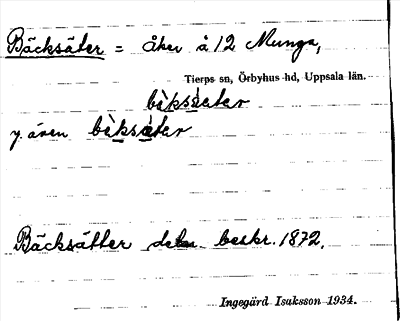 Bäcksäter = åker å 12 Munga,
Tierps sn, Örbyhus hd, Uppsala län.
bèksæ̀ter
y. även bèksæter
Bäcksätter beskr. 1872.
Ingegärd Isaksson 1934.